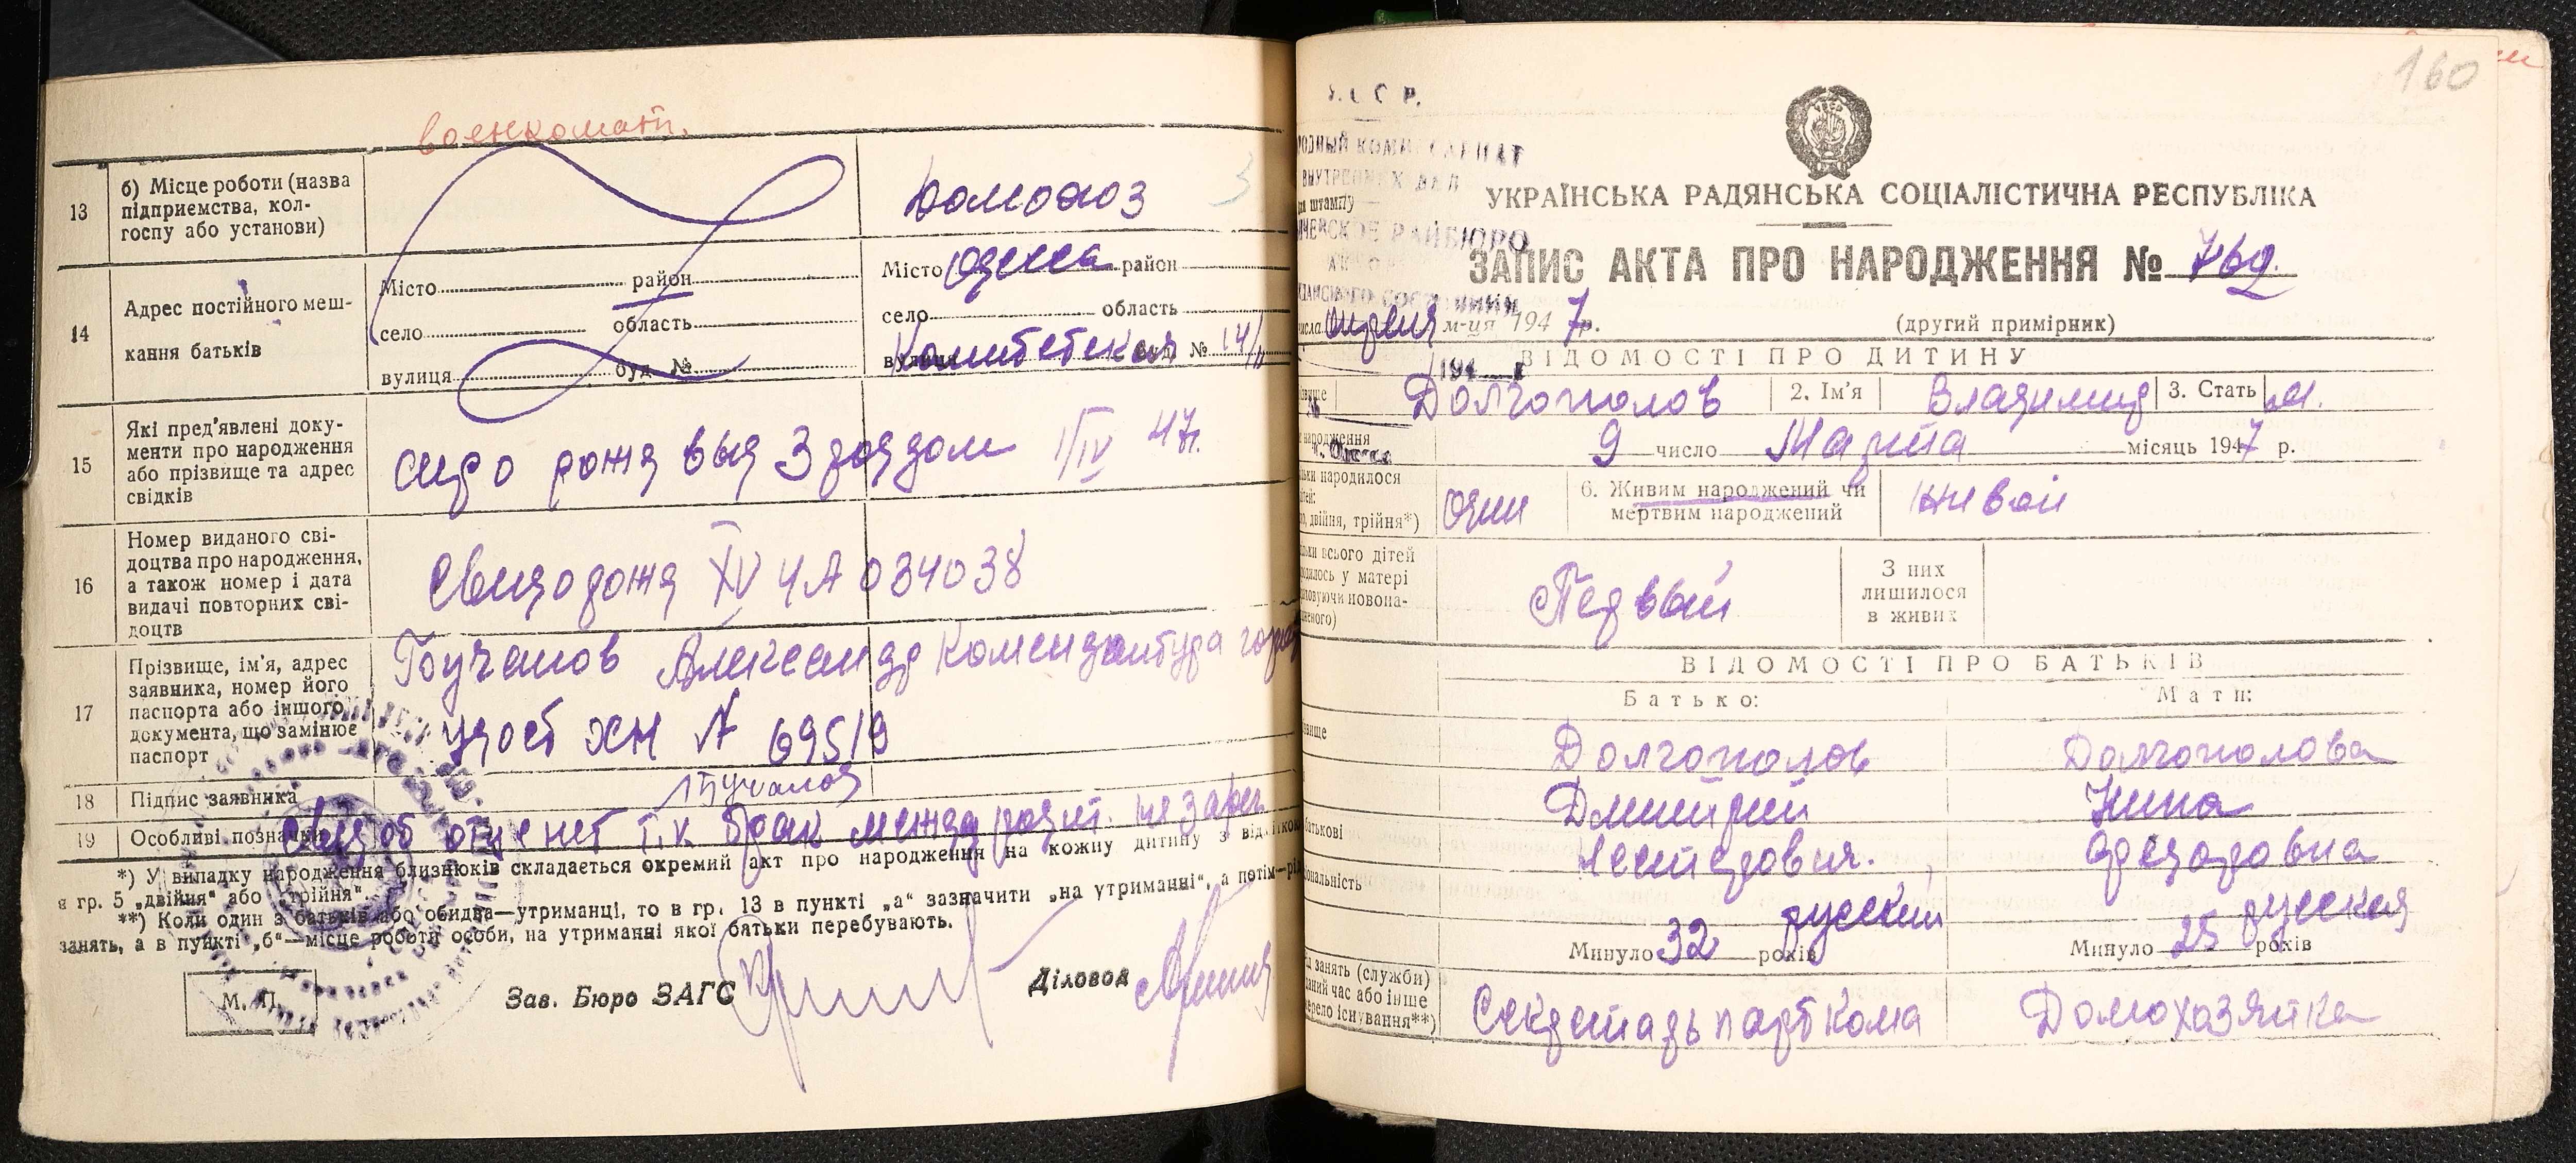 военкомат.
13
б) Місце роботи (назва
підприємства, кол-
госпу або установи)
14
Адрес постійного меш-
кання батьків
Місто район
село область
вулиця буд. №
Місто Одесса район
село область
вулиця Комитетская буд. № 14/
15
Які пред'явлені доку-
менти про народження
або прізвище та адрес
свідків
о рожд выд 3 роддом 1/IV 47 г.
16
Номер виданого сві-
доцтва про народження,
а також номер і дата
видачі повторних сві-
доцтв
Свид о рожд XV ЧА 034038
17
Прізвище, ім'я, адрес
заявника, номер його
паспорта або іншого
документа, що замінює
паспорт
Александр Комендатура
удост № 69519
18 Підпис заявника
19 Особливі позначки
Свед об отце нет т.к брак между родит. не зарег
*) У випадку народження близнюків складається окремий акт про народження на кожну дитину з відміткою
в гр. 5 „двійня“ або „трійня“.
**) Коли один з батьків або обидва—утриманці, то в гр. 13 в пункті „а“ зазначити „на утриманні“, а потім—рід
занять, а в пункті „б“—місце роботи особи, на утриманні якої батьки перебувають.
М. П.
Зав. Бюро ЗАГС
Діловод
160
УКРАЇНСЬКА РАДЯНСЬКА СОЦІАЛІСТИЧНА РЕСПУБЛІКА
ЗАПИС АКТА ПРО НАРОДЖЕННЯ № 762.
апреля м-ця 1947 р.
(другий примірник)
ВІДОМОСТІ ПРО ДИТИНУ
Долгополов 2. Ім'я Владимир 3. Стать м.
народження
9 число Марта місяць 1947 р.
народилося
двійня, трійня*)
один
6. Живим народжений чи
мертвим народжений
живой
всього дітей
у матері
Первый
З них
лишилося
в живих
ВІДОМОСТІ ПРО БАТЬКІВ
Батько: Мати:
Долгополов Долгополова
Дмитрий Нина
Нестерович. Федоровна
русский русская
Минуло 32 років Минуло 25 років
занять (служби)
час або інше
існування**)
Секретарь парткома Домохозяйка